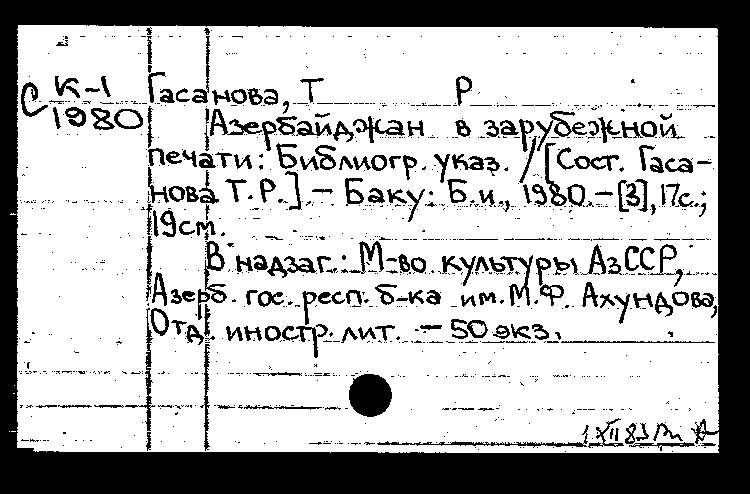 С К-1 Гасанова, Т Р
1980 Азербайджан в зарубежной
печати: Библиогр. указ. / [Сост. Гаса-
нова Т.Р.] – Баку: Б.и., 1980. – [3], 17с.;
19см.
В надзаг.: М-во культуры АзССР,
Азерб. гос. респ. б-ка им. М.Ф. Ахундова,
Отд. иностр. лит. – 50 экз.